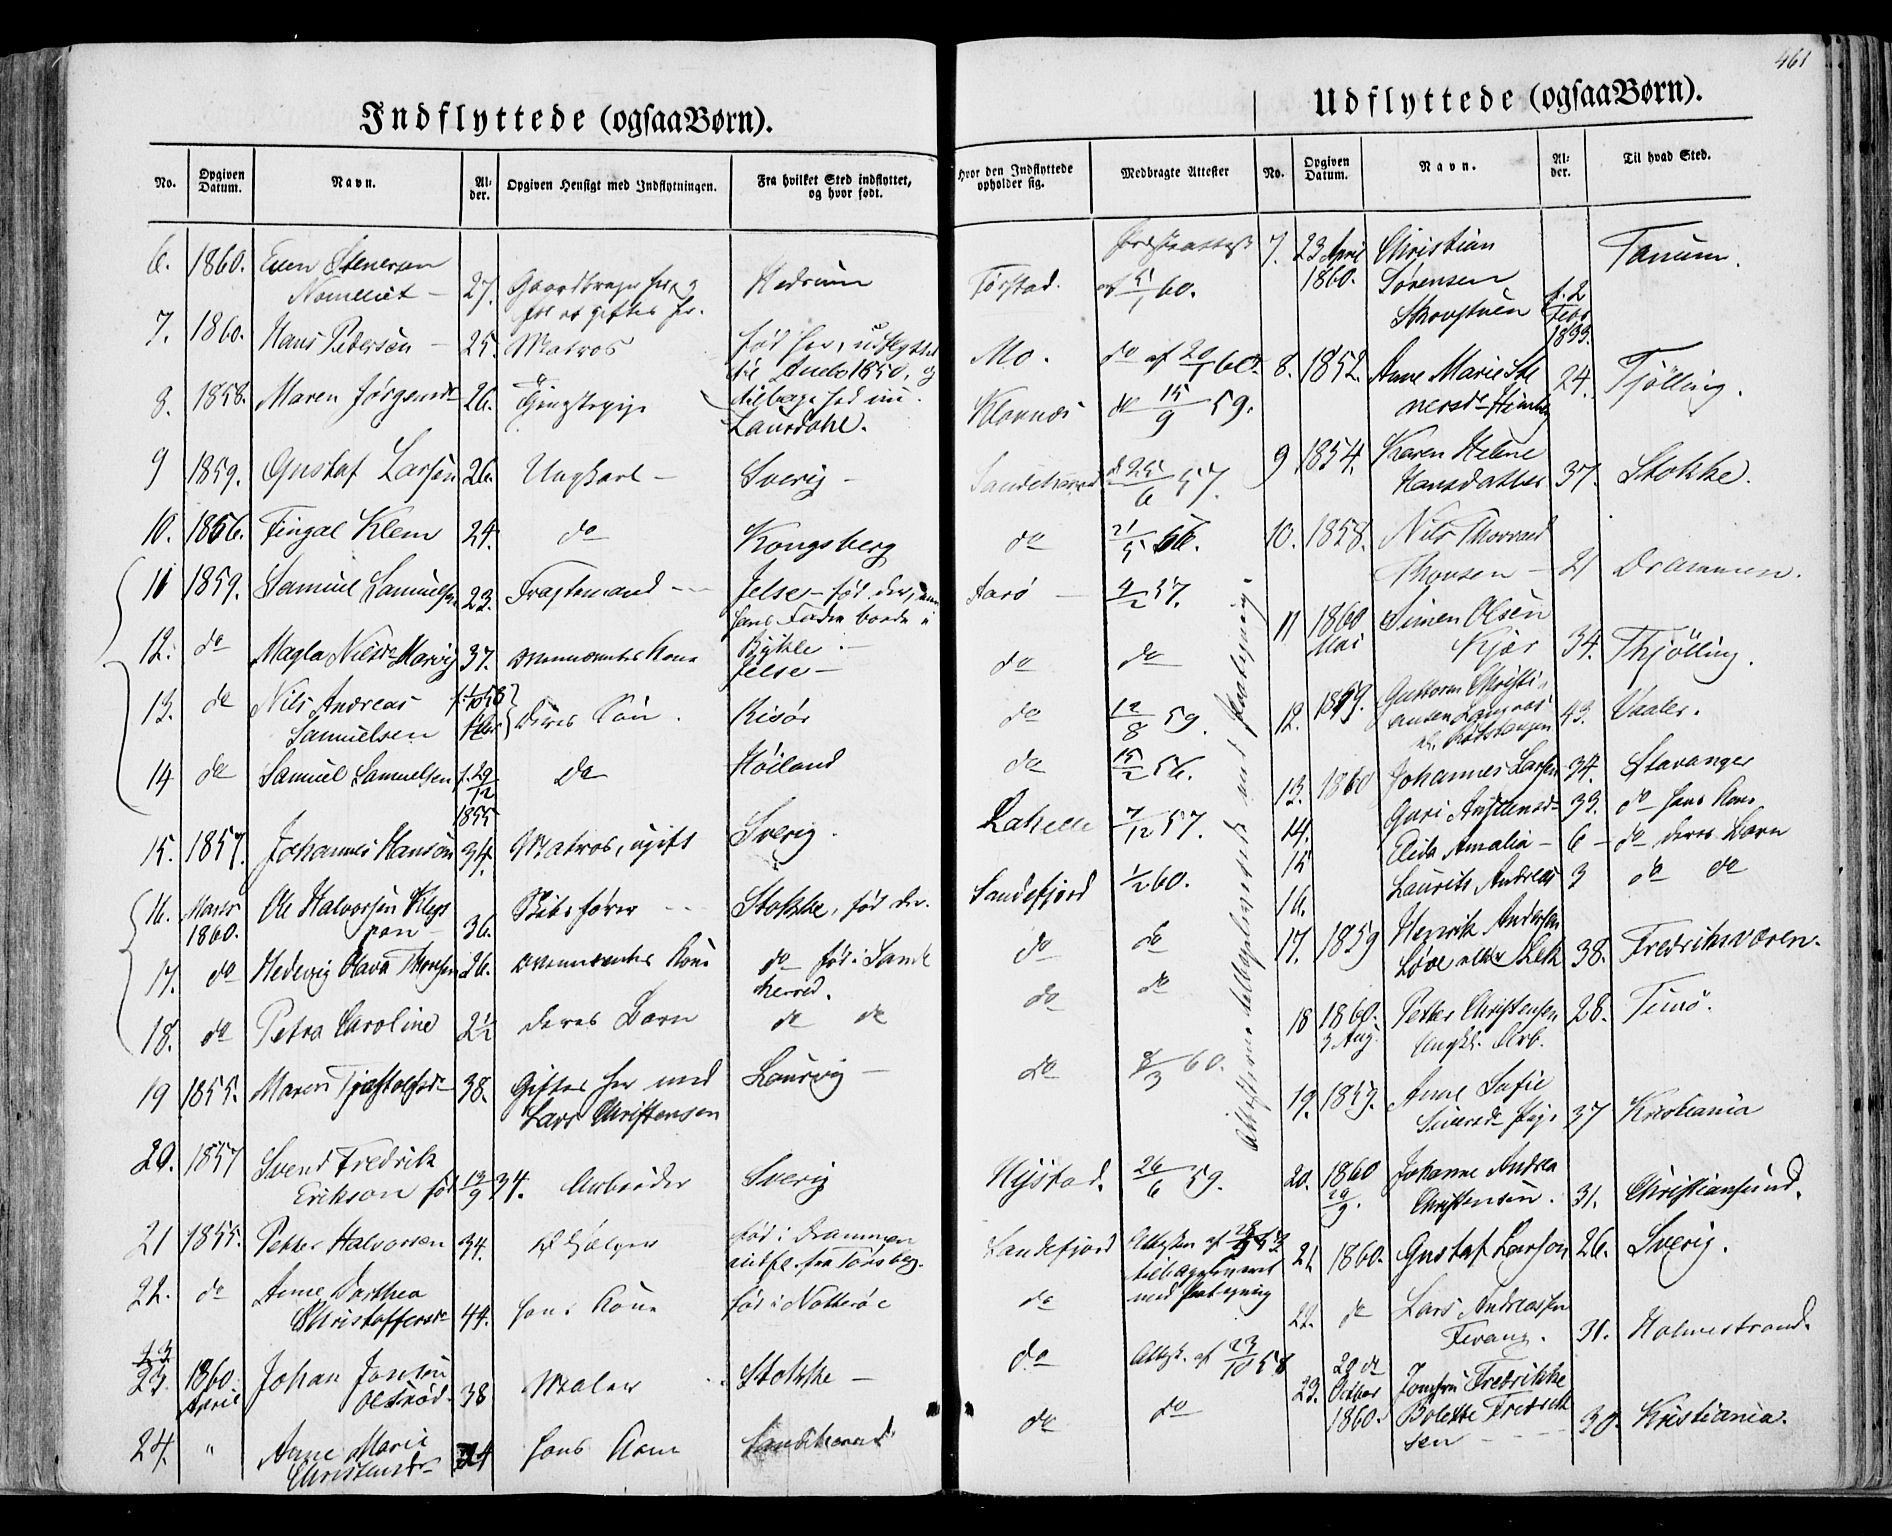 461
Indflyttede (ogsaa Børn).
No. Opgiven Datum. Navn. Alder. Opgiven Hensigt med Indflytningen. Fra hvilket Sted indflyttet, og hvor født. Hvor den Indflyttede opholder sig. Medbragte Attester
6. 1860. Even Stenersen
27. Hedrum Tørstad. af 5/1 60.
7. 1860. Hans Pedersen 25. Matros født her, udflyttet Mo. do af 20/1 60.
til Anebo 1850, og
8. 1858. Maren Jørgensd 26. Tjenestepige tilbage hid ni. Klavnæs do 15/9 59.
Laurdahl.
9 1859. Gustaf Larsen 26. Ungkarl Sverig Sandeherred d 25/6 57.
10. 1856. Fingal Klem 24. do Kongsberg do 21/5 56.
11 1859. Samuel Samuelsen 23. Fragtemand Jelse - født der, men Aarø 4/2 57.
hans Fødre boede i
12. do Magla Nilsd 37. Kone Bykle. Jelse do do
13. do Nils Andreas
Samuelsen deres Søn. Risør do 12/8 59.
14 do Samuel Samuelsen f. 29/12 1855 do Høiland do 15/2 56.
15. 1857. Johannes Hansen 34. Matros, ugift Sverig. 7/12 57.
16. Marts 1860. Ole Halvorsen
36. Skibsfører Stokke, født der. Sandefjord 1/2 60.
17. do Hedevig Olava Thoresen 26. Kone do født i Sande do do
herred.
18. do Petra Caroline 2 1/2 deres Barn do do do do
19 1855. Maren 38. Giftes her med Laurvig do 8/3 60.
Lars Christensen
20. 1857 Svend Fredrik
Erikson født 13/9 34. Arbeider Sverig Nystad. 26/6 59.
21 1855. Petter Halvorsen 34. født i Drammen Sandefjord Attester af
indfl. fra Tønsberg. tilbageleveret
22. do Anne Dorthea med
Christoffersd 44. hans Kone født i Nøtterø do
23 1860 April Johan Jansen
Olsrød 38 Maler Stokke do Attest. af 23/10 58
24. " Anne Marie
Christensd 34 hans Kone Sandeherred do do
Udflyttede (ogsaa Børn).
No. Opgiven Datum. Navn. Alder. Til hvad Sted.
7. 23 April 1860. Christian
Sørensen
f. 2 Febr 1833. Tanum.
8. 1852. Anne Marie Ste
nersd 24. Tjølling.
9 1854. Karen Helene
Hansdatter 37. Stokke.
10. 1858. Nils Thorvald
Thorsen 21 Drammen.
11 1860 Mai Simen Olsen
Kjær 34. Thjølling.
12. 1859. Guttorm Christi
ansen 43. Vaaler.
13. 1860 Johannes Larsen 34. Stavanger
14. Guri 33. do hans Kone
15 Elida Amalia 6 do deres Barn
16. Laurits Andreas 3 do do
17. 1859 Henrik Andersen
Løve eller 38. Fredriksværen.
18 1860. 3 Aug. Petter Christensen 28. Timø.
Ungk. Arb.
19. 1859. Anne Sofie
37 Kristiania
20. 1860 Johanne Andrea
Christensen. 31. Christiansund.
21 1860. Gustaf Larson 26. Sverig.
22. do Lars Andreassen
Fevang. 31. Holmestrand.
23. 20 de October 1860. Jomfru Fredrikke
Bolette Fredrik
sen 30. Kristiania.